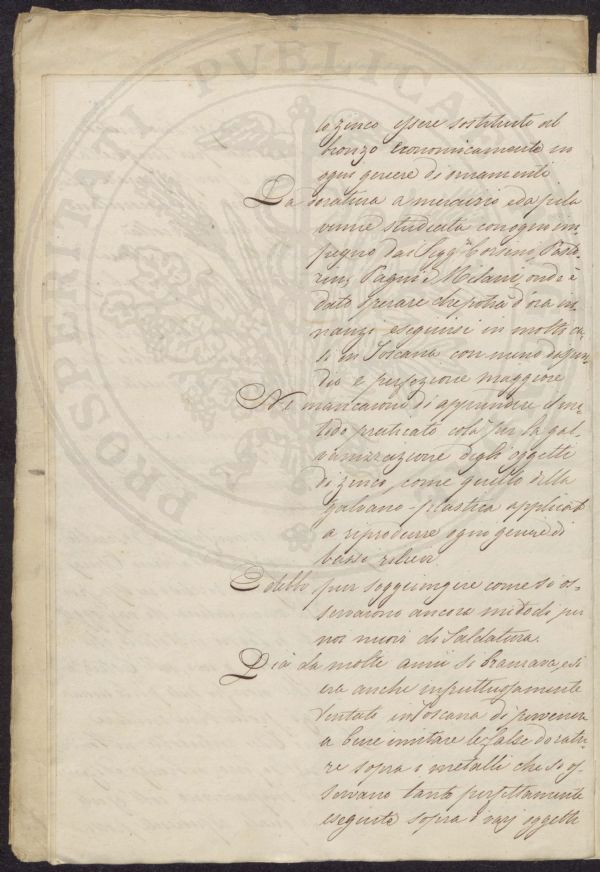 PROSPERITATI PVBLICAE
lo zinco essere sostituito al
bronzo economicamente in
ogni genere di ornamenti
La doratura a mercurio ed a pila
venne studiata con ogni im-
pegno dai Sigg.ri Corsini, Pasto-
rini, Pagni e Milani, onde è
dato sperare che potrà d'ora in-
nanzi eseguirsi in molti ca-
si in Toscana con meno dispen-
dio e perfezione maggiore
Né mancarono di apprendere il me-
todo praticato colà per la gal-
vanizzazione degli oggetti
di zinco, come quello della
galvano-plastica applicata
a riprodurre ogni genere di
bassi rilievi
E debbo pur soggiungere come si os-
servarono ancora metodi per
noi nuovi di Saldatura.
Già da molti anni si bramava, e si
era anche infruttuosamente
tentato in Toscana di pervenire
a bene imitare le false doratu-
re sopra i metalli che si os-
servano tanto perfettamente
eseguite sopra i varj oggetti